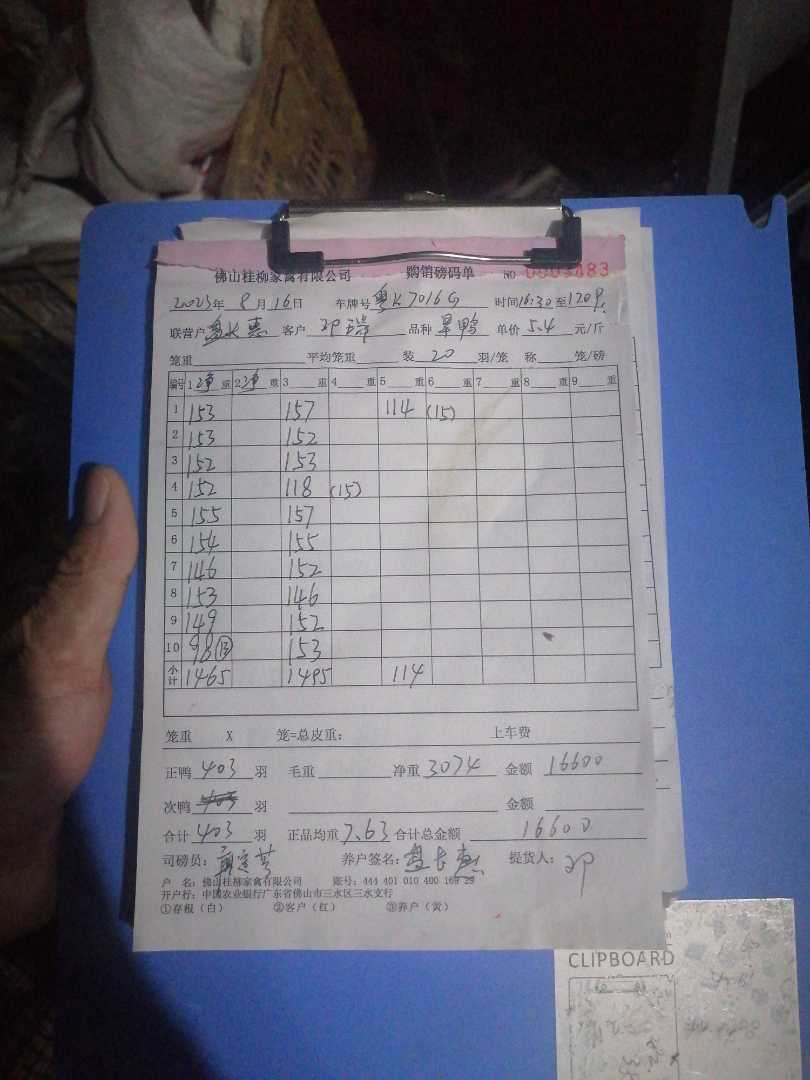 佛山桂柳家禽有限公司 购销磅码单 NO 0003483
2023年 8月16日 车牌号 粤K7016G 时间16:30至
联营户 盘长惠 客户 邓 品种 单价 5.4 元/斤
笼重 平均笼重 装 20 羽/笼 称 笼/磅
编号 1 净 重 2 净 重 3 重 4 重 5 重 6 重 7 重 8 重 9 重
1 153 157 114 (15)
2 153 152
3 152 153
4 152 118 (15)
5 155 157
6 154 155
7 146 152
8 153 146
9 149 152
10 98 ⑬ 153
小计 1465 1495 114
笼重 X 笼=总皮重: 上车费
正鸭 403 羽 毛重 净重 3074 金额 16600
次鸭 羽 金额
合计 403 羽 正品均重 7.63 合计总金额 16600
司磅员: 养户签名: 盘长惠 提货人: 邓
户 名: 佛山桂柳家禽有限公司 账号: 444 401 010 400 169 29
开户行: 中国农业银行广东省佛山市三水区三水支行
①存根（白） ②客户（红） ③养户（黄）
CLIPBOARD